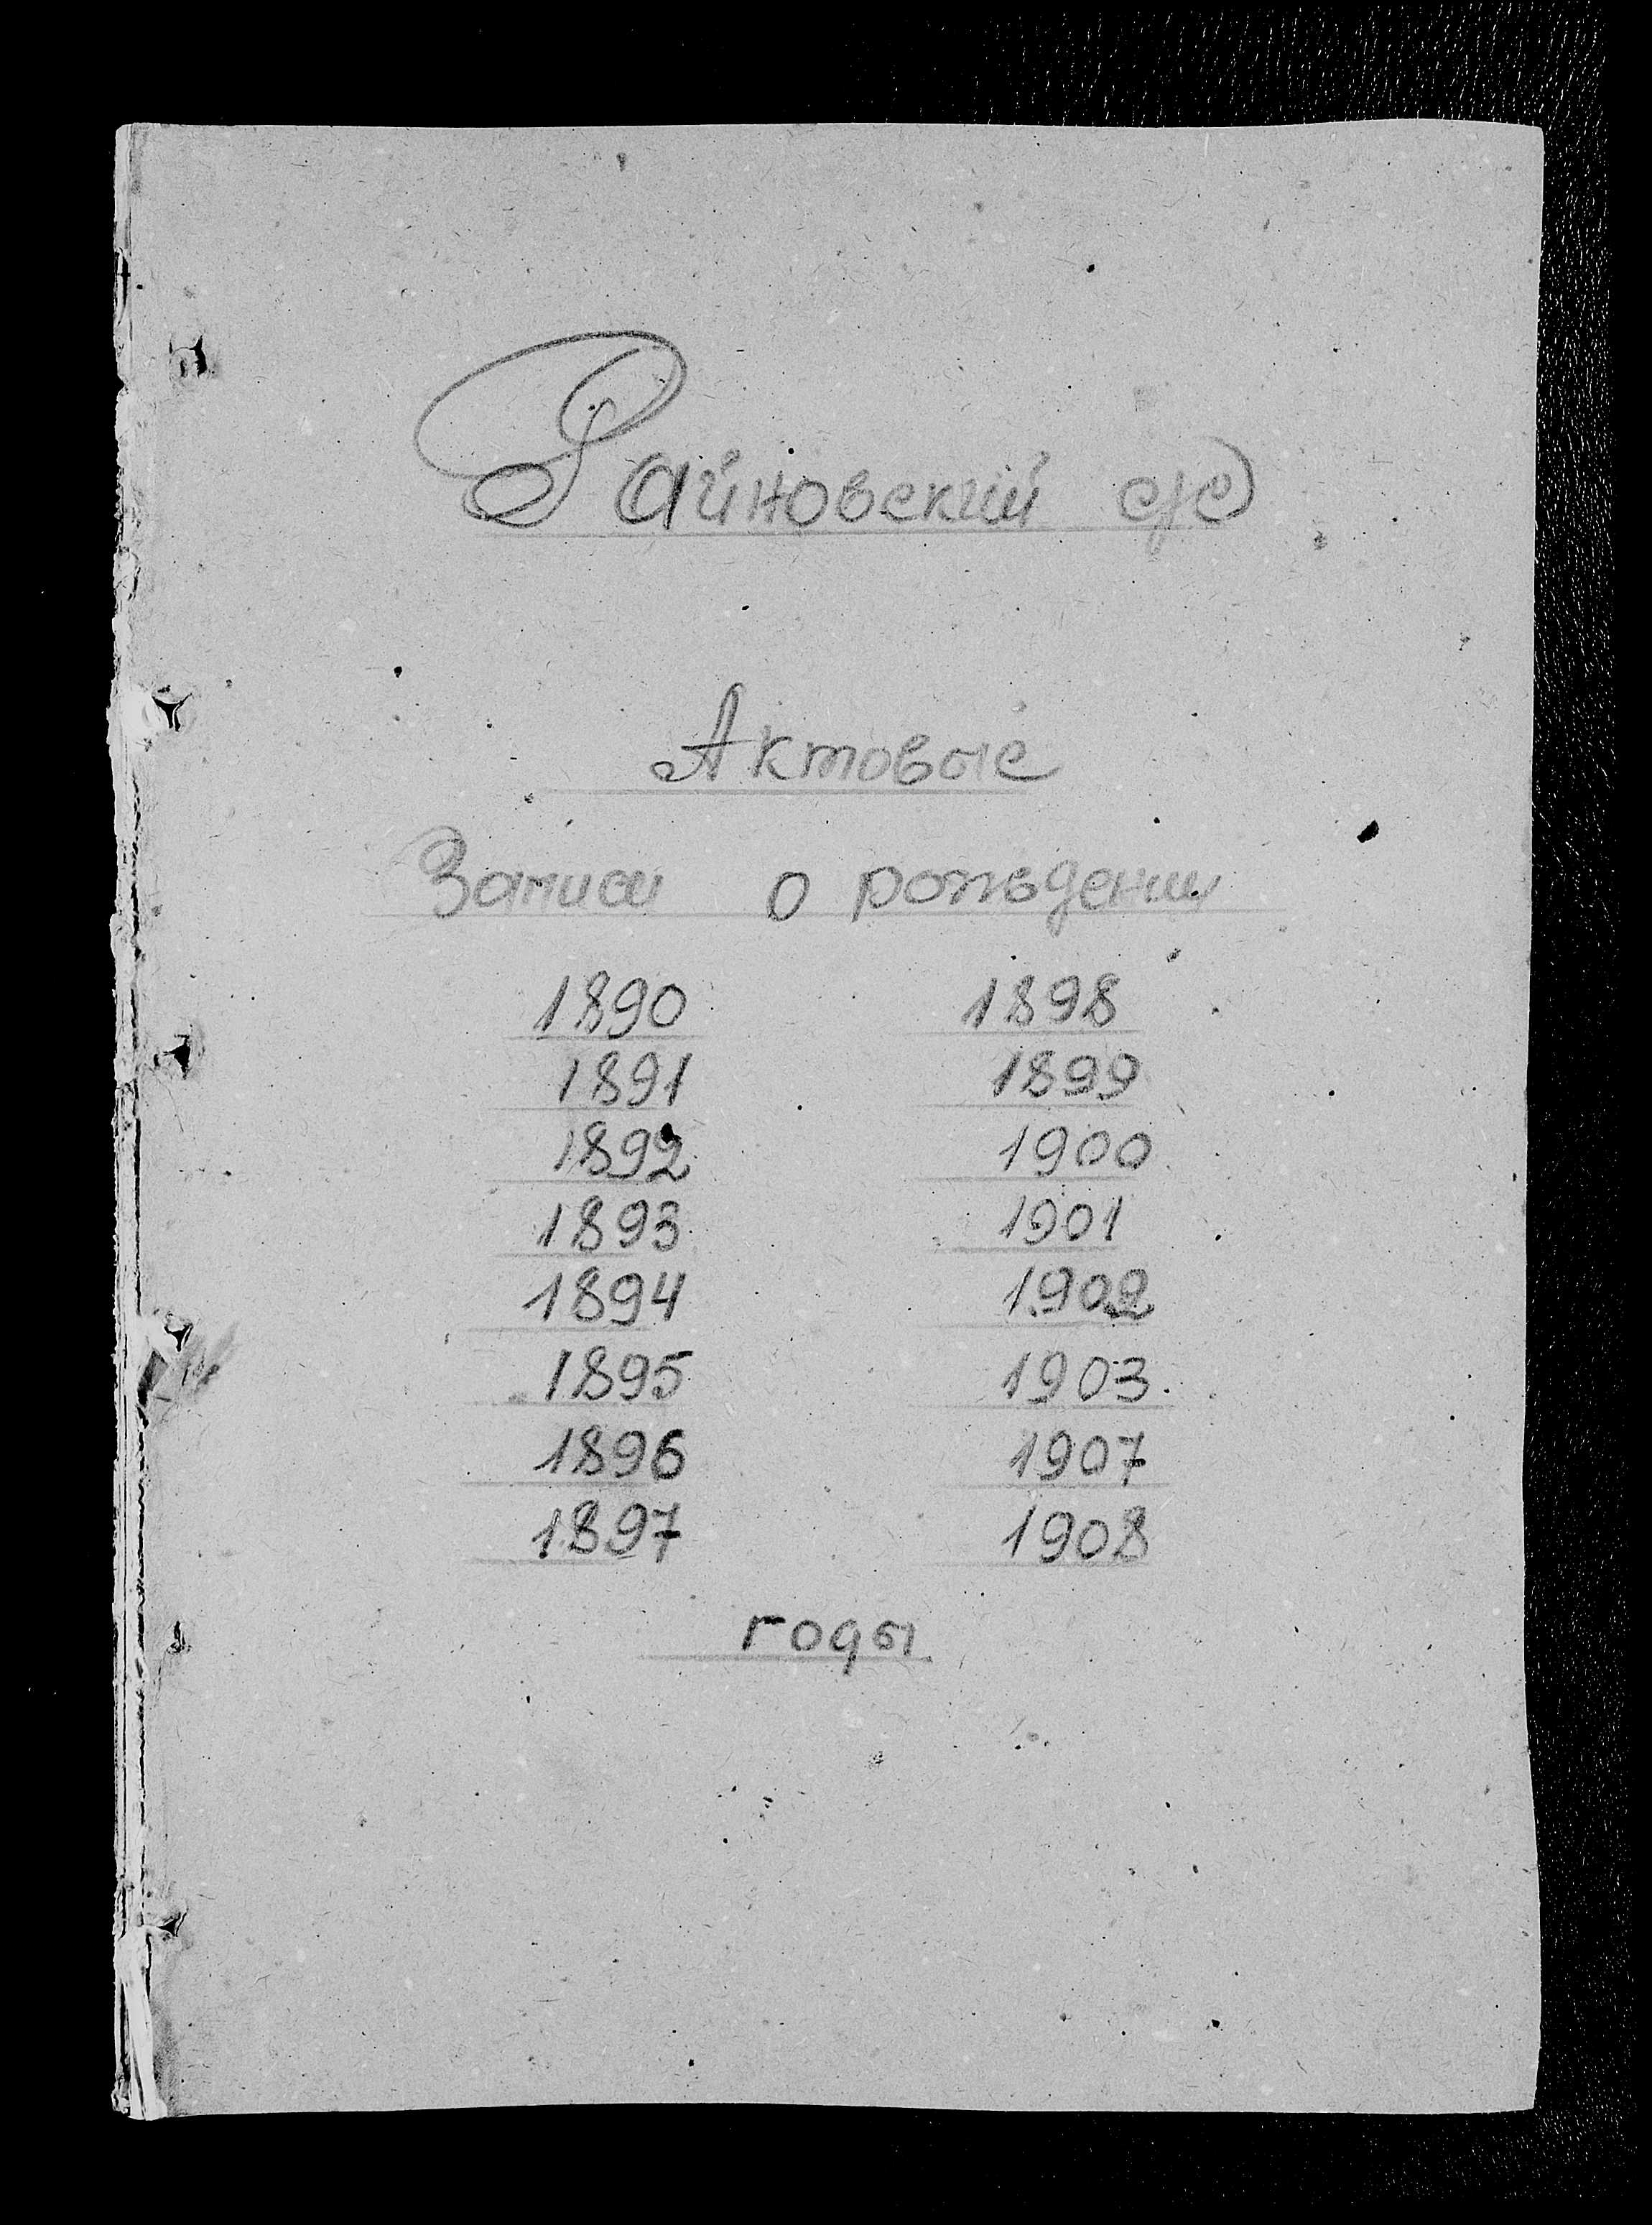 Райновский с/с
Актовые
Записи о рождении
1890 1898
1891 1899
1892 1900
1893 1901
1894 1902
1895 1903.
1896 1907
1897 1908
годы